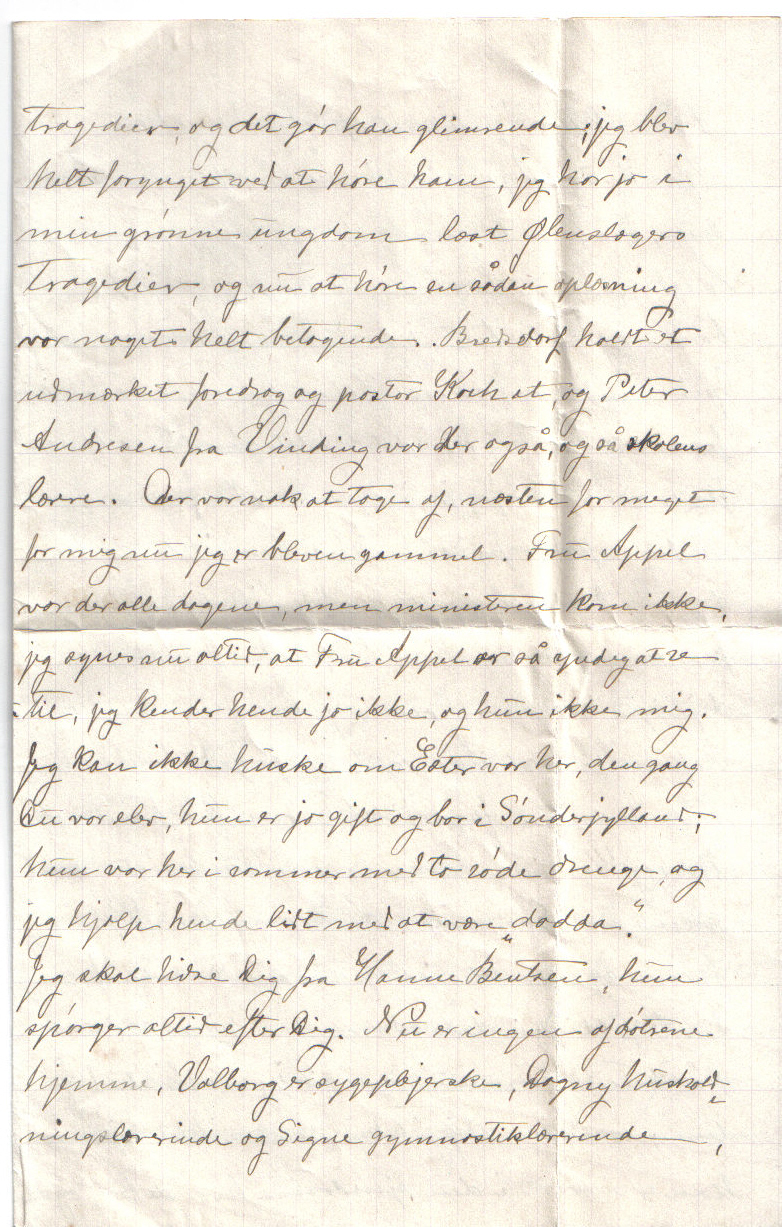 Tragedier, og det gór han glimrende; jeg blev
helt forynget ved at hóre ham, jeg har jo i
min grónne ungdom læst Ølenslægers
Tragedier, og nu at hóre en sådan oplæsning
var noget helt betagende. Bredsdorf holdt et
udmærket foredrag og pastor Koch et, og Peter
Andresen fra Vinding var der også, og så skolens
lærere. Der var nok at tage af, næsten for meget
for mig nu jeg er bleven gammel. Fru Appel
var der alle dagene, men ministeren kom ikke,
jeg synes nu altid, at Fru Appel er så yndig at se
til, jeg kender hende jo ikke, og hun ikke mig.
Jeg kan ikke huske om Ester var her, den gang
Du var elev, hun er jo gift og bor i Sónderjylland;
hun var her i sommer med to sóde drenge, og
jeg hjalp hende lidt med at være „dadda“.
Jeg skal hilse Dig fra Hanne Bentsen, hun
spórger altid efter Dig. Nu er ingen af dótrene
hjemme, Valborg er sygeplejerske, Dagny hushold-
ningslærerinde og Signe gymnastiklærerinde,